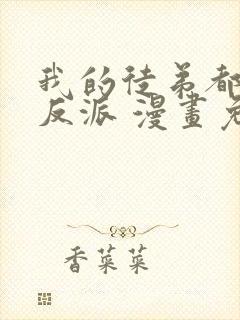 我的徒弟都
反派 漫畫 免
香菜菜